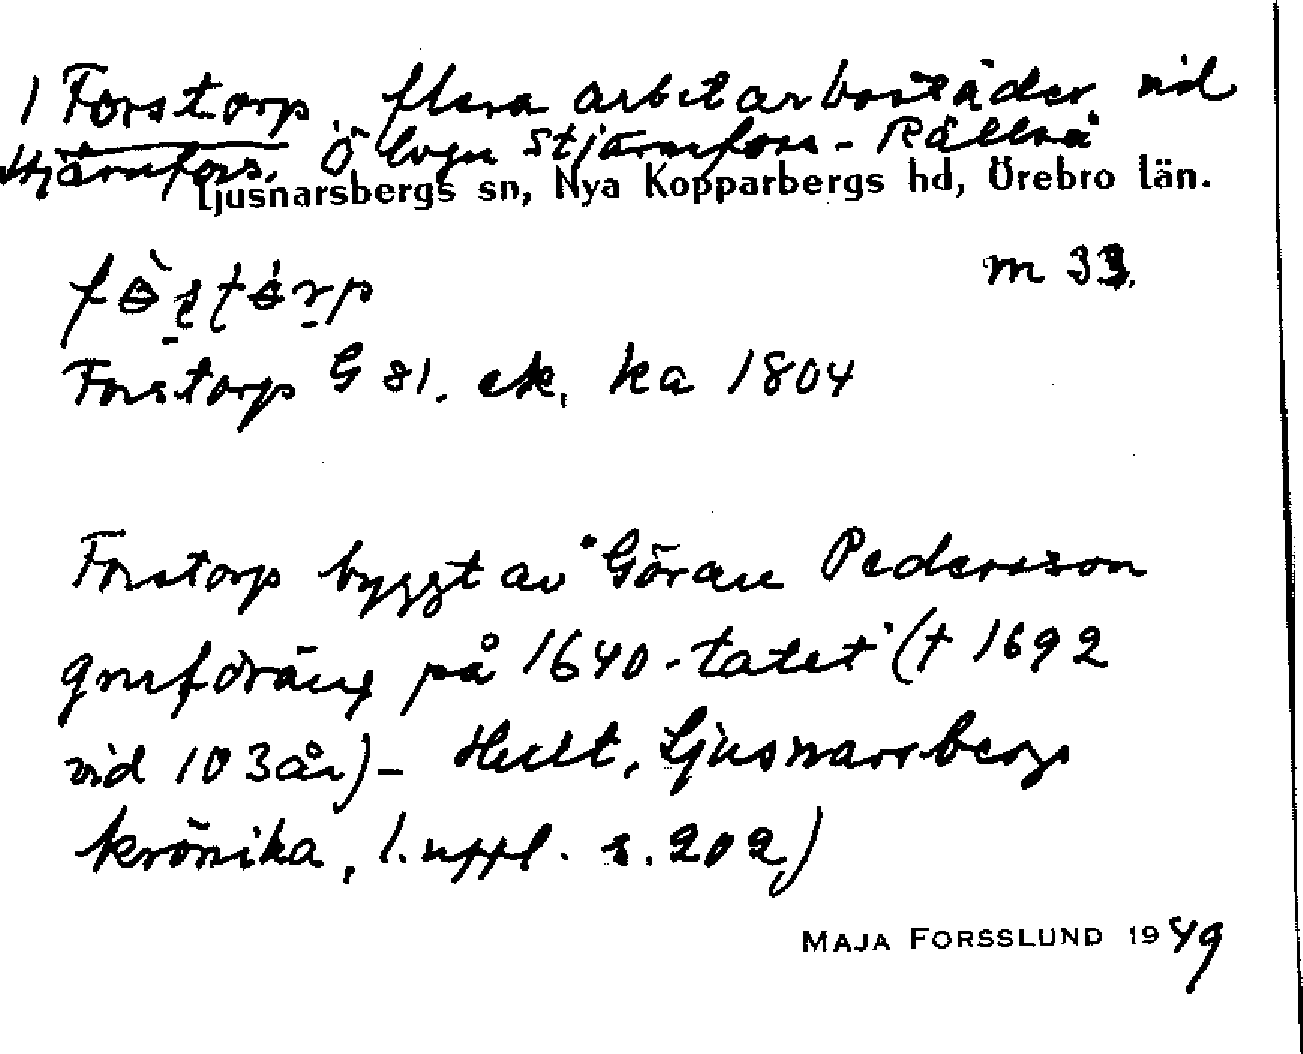 1 Forstorp, flera arbetarbostäder vid
Stjärnfors. Ö lvgn Stjärnfors - Rällså
Ljusnarsbergs sn, Nya Kopparbergs hd, Örebro län.
m 33.
Forstorp G 81. ek. ka 1804
Forstorp byggt av "Göran Pedersson
gruvdräng på 1640-talet" († 1692
vid 103 år) - Hult, Ljusnarsbergs
krönika, 1. uppl. s. 202)
MAJA FORSSLUND 1949